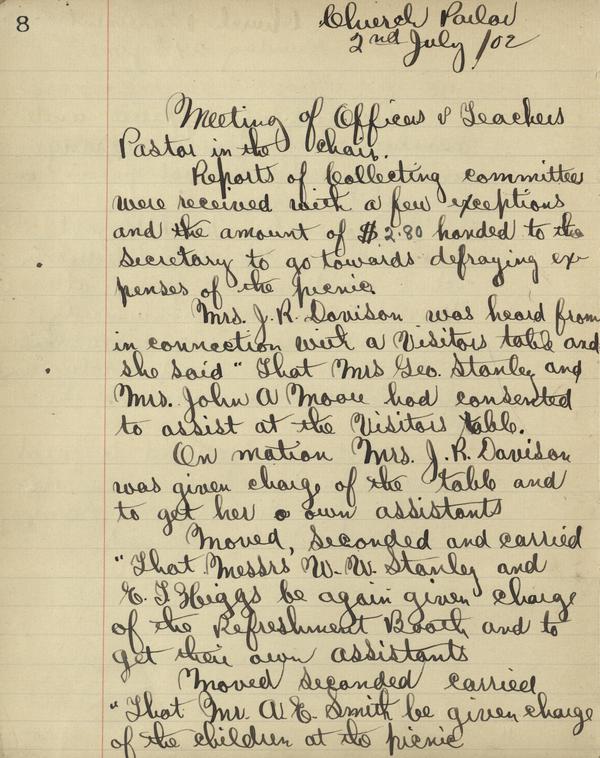 8
Church Parlor
2nd July /02
Meeting of Officers & Teachers
Pastor in the chair.
Reports of Collecting committee
were received with a few exceptions
and the amount of $2.80 handed to the
Secretary to go towards defraying ex-
penses of the picnic.
Mrs. J.R. Davison was heard from
in connection with a Visitors table and
she said "That Mrs Geo. Stanley and
Mrs. John A Moore had consented
to assist at the Visitors table.
On motion Mrs. J.R. Davison
was given charge of the table and
to get her own assistants
Moved, seconded and carried
"That Messrs W.W. Stanley and
E. T Higgs be again given charge
of the Refreshment Booth and to
get their own assistants
Moved seconded carried
"That Mr. A E. Smith be given charge
of the children at the picnic